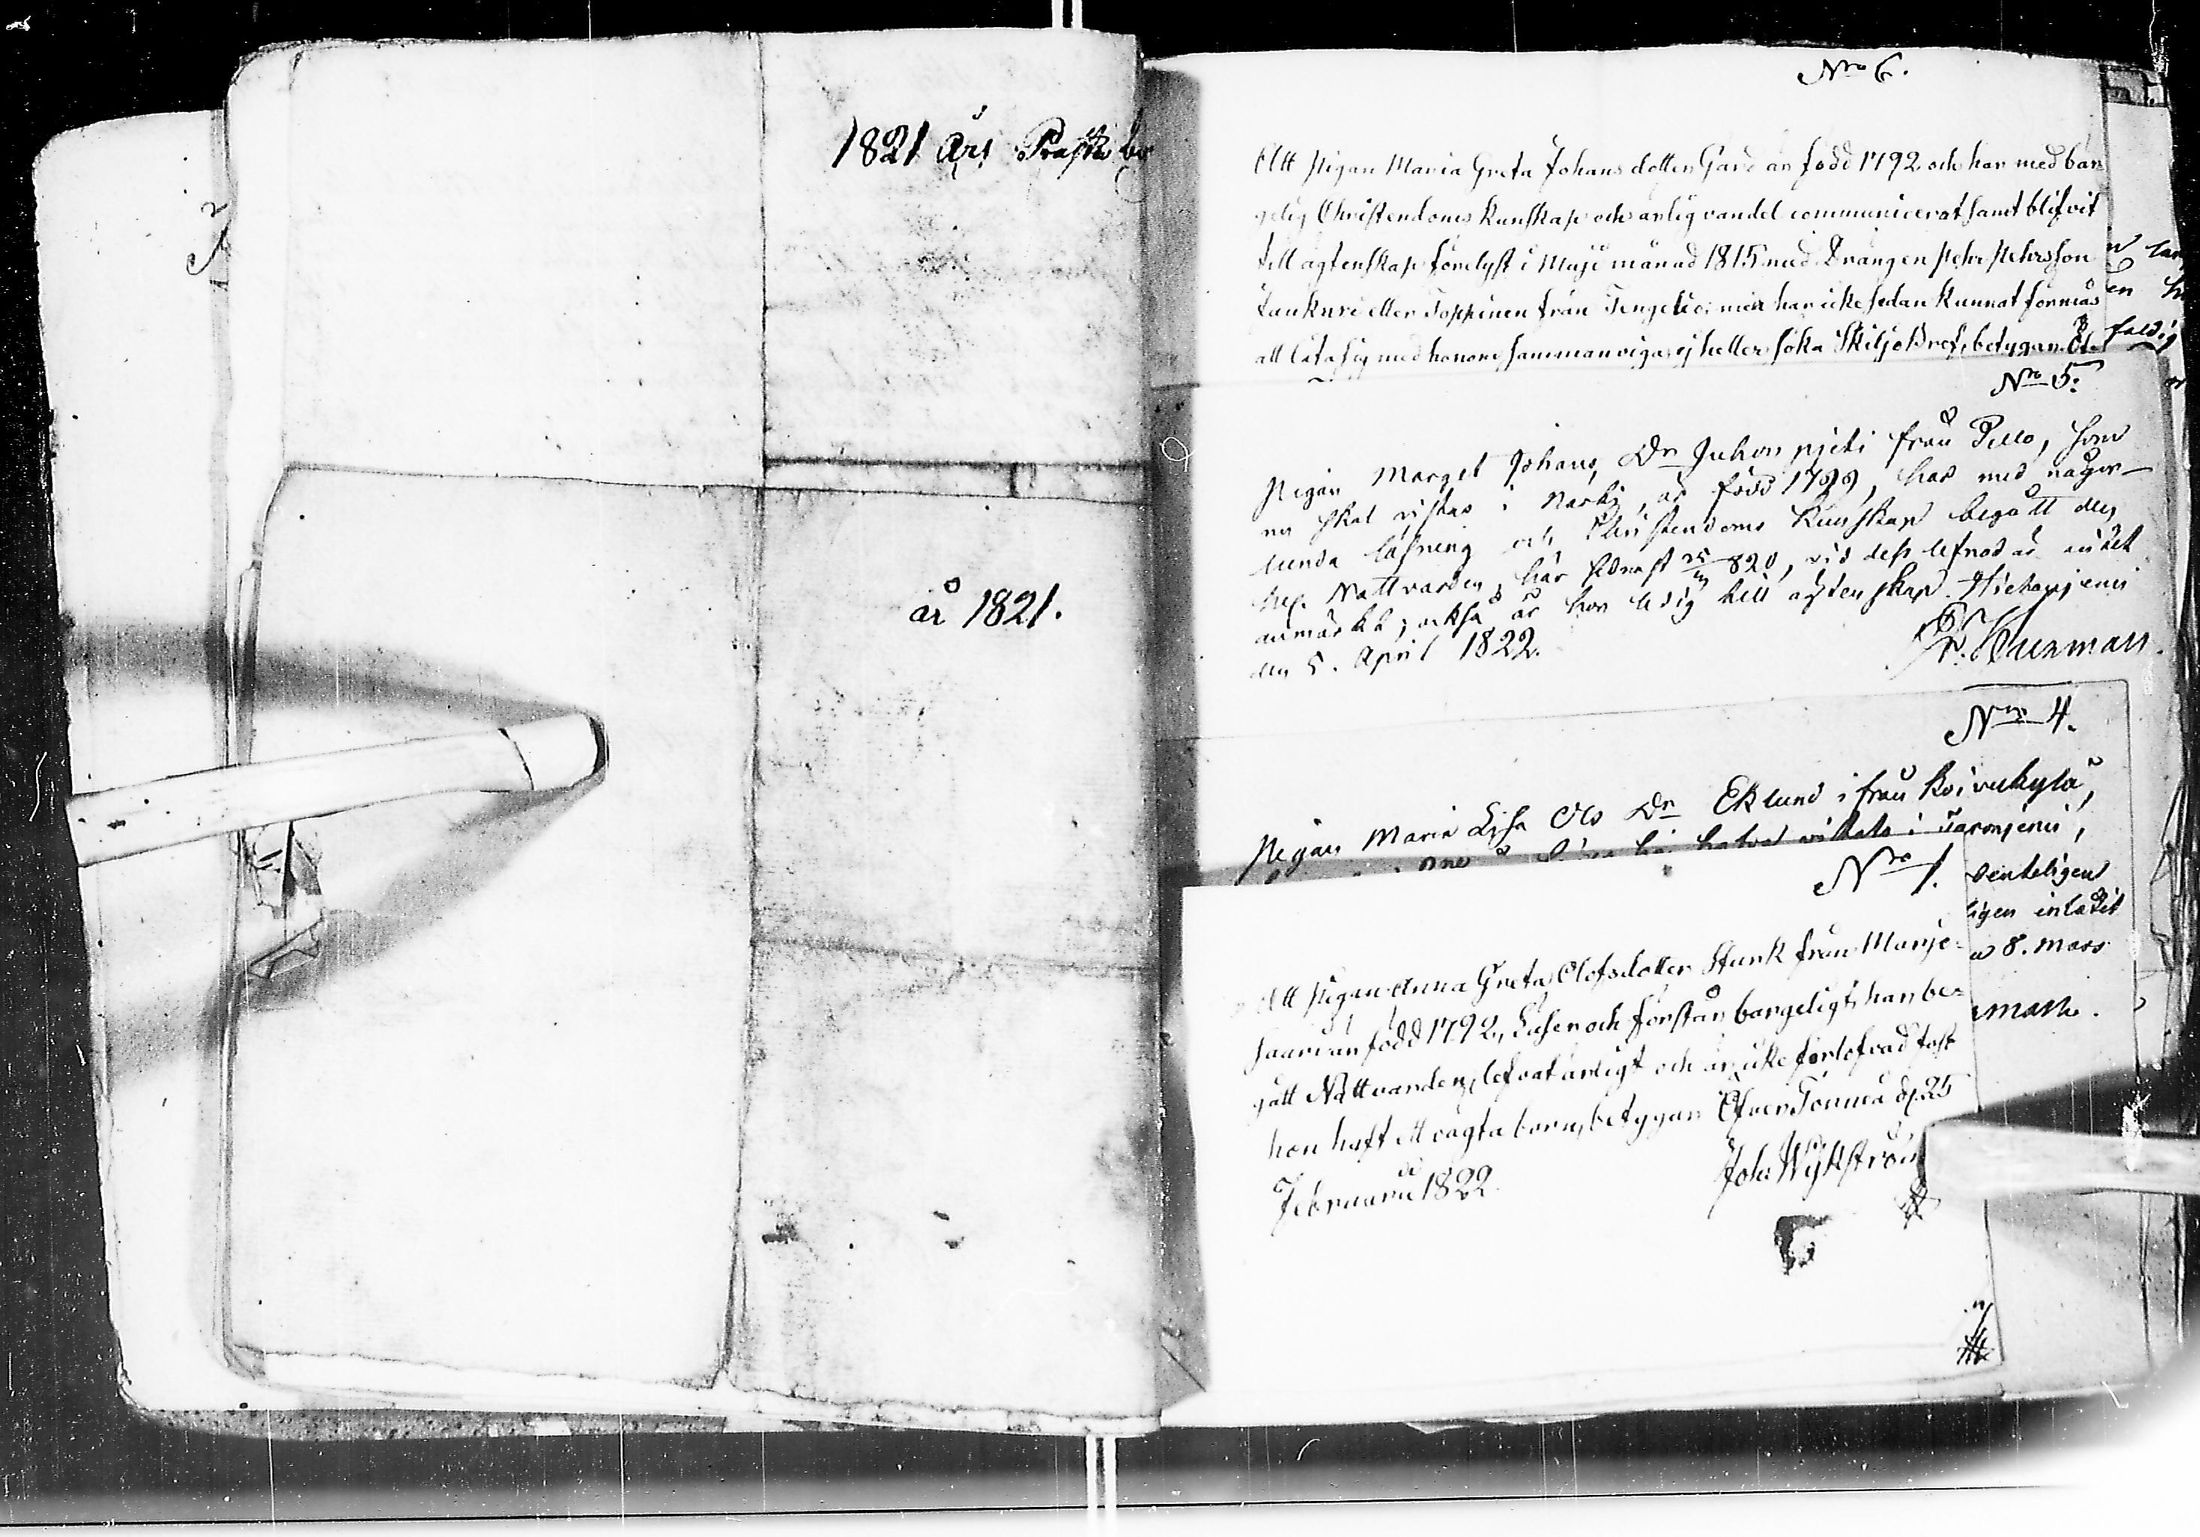 1821 års Präste be
år 1821.
Nro 6.
Att Pigan Maria Greta Johansdotter Gard är född 1792 och har med bär
gelig Christendoms kunskap och ärlig vandel communicerat samt blifvit
till ägtenskap förelyst i Maji månad 1815 med Drängen Pehr Pehrsson
eller Toppinen från Tengeliö; men har icke sedan kunnat förmås
att låta sig med honom sammanvigas ej heller söka Skiljobref, betygar. Öf
faldig
Nro 5.
Pigan Marget Johans Dr Juhonpjeti från Pello, som
nu skal vistas i Narki, är född 1799, har med någor-
lunda läsning och Christendoms kunskap begått den
Hel. Nattvarden, här sednast 820, vid dess lefnad är intet
anmärkt; också är hon ledig till ägtenskap. Hietaniemi
den 5. April 1822.
Nro 4.
Pigan Maria Lisa Ols Dr Eklund ifrån Koivukylä,
vistats i
denteligens
ligen inlåtit
n 8. Mars
man.
Nro 1.
Att Pigan Anna Greta Olofsdotter Stark från Marje-
saari är född 1792, Läser och förstår bärgeligt, har be-
gått Nattvarden, lefvat ärligt och är icke förlofvad fast
hon haft ett oägta barn, betygar ÖfverTorneå d. 25
Februarii 1822.
Joh: Wykström